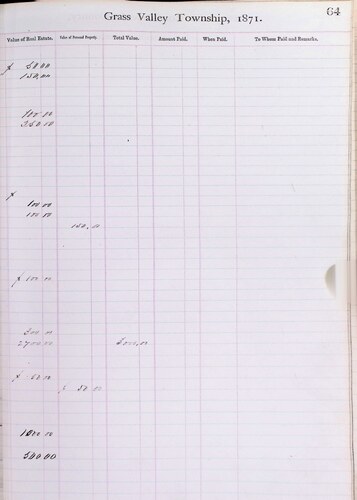 Grass Valley Township, 1871.
64
Value of Real Estate. Value of Personal Property. Total Value. Amount Paid. When Paid. To Whom Paid and Remarks.
50 00
150,00
100 00
350 00
100 00
100 00
150.00
100 00
300 00
2700 00
60 00
50 00
1000 00
500 00